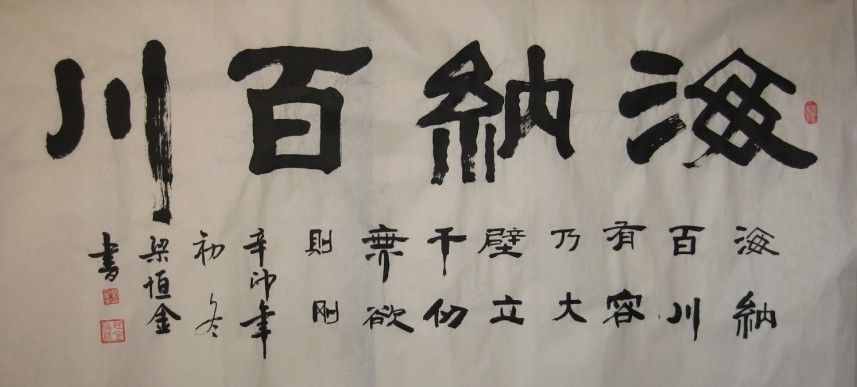 海納百川
海納
百川
有容
乃大
壁立
千仞
無欲
則剛
辛卯年
初冬
梁恒金
書